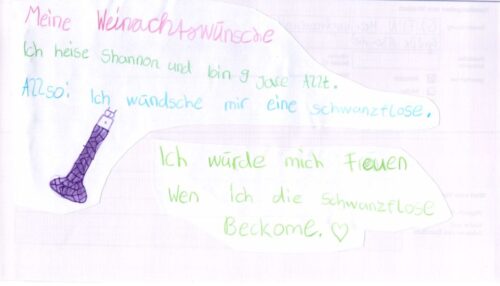 Meine Weinachtswünsche
Ich heise Shannon und bin 9 Jare Allt.
Allso: Ich wündsche mir eine schwanzflose.
Ich würde mich freuen
wen ich die schwanzflose
Beckome. ♡